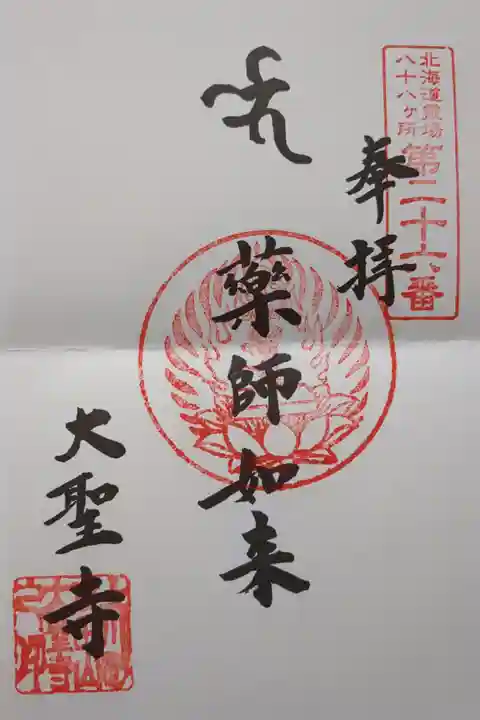 北海道霊場
八十八ヶ所
第二十六番
奉拝
藥師如来
大聖寺